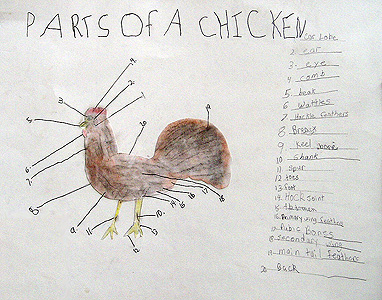 PARTS OF A CHICKEN
1. Ear Lobe
2. ear
3. eye
4. comb
5. beak
6. Wattles
7. Hackle Feathers
8 Breast
9 Keel bone
10 Shank
11 spur
12. toes
13. foot
14. HOCK JOINT
15. Abdomen
16. Primary wing feathers
17 Pubic Bones
18. Secondary wing
19. main tail feathers
20. Back